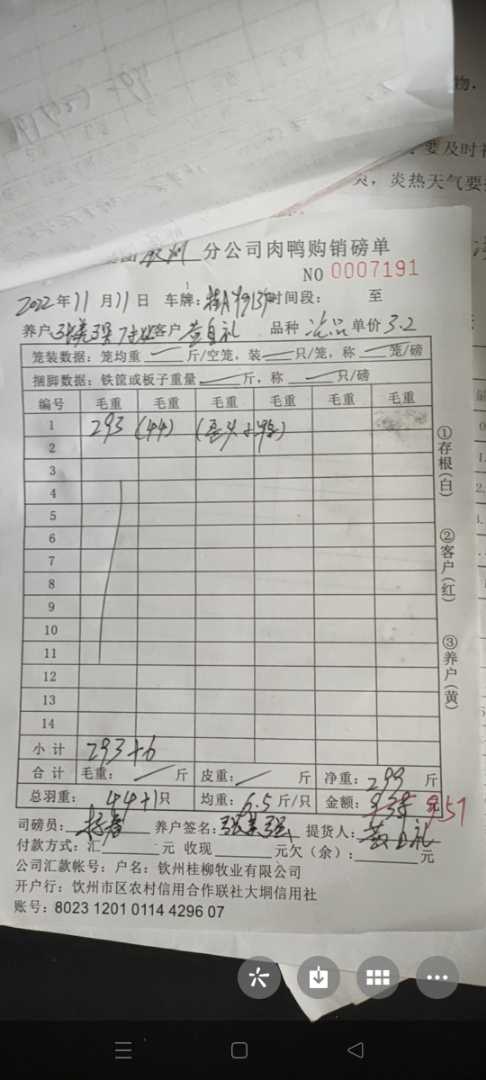 物,
要及时
炎热天气要
钦州 分公司肉鸭购销磅单
NO 0007191
2022年11月11日 车牌: 时间段: 至
养户 客户 黄自礼 品种 单价 3.2
笼装数据: 笼均重 斤/空笼, 装 只/笼, 称 笼/磅
捆脚数据: 铁筐或板子重量 斤, 称 只/磅
编号 毛重 毛重 毛重 毛重 毛重 毛重
1 293 (44)
2
3
4
5
6
7
8
9
10
11
12
13
14
小计 293+6
合计 毛重: 斤 皮重: 斤 净重: 299 斤
总羽重: 44+1只 均重: 6.5斤/只 金额: 元 57
司磅员: 养户签名: 提货人: 黄自礼
付款方式: 汇 元 收现 元欠(余): 元
公司汇款帐号: 户名: 钦州桂柳牧业有限公司
开户行: 钦州市区农村信用合作联社大垌信用社
账号: 8023 1201 0114 4296 07
①存根(白)
②客户(红)
③养户(黄)